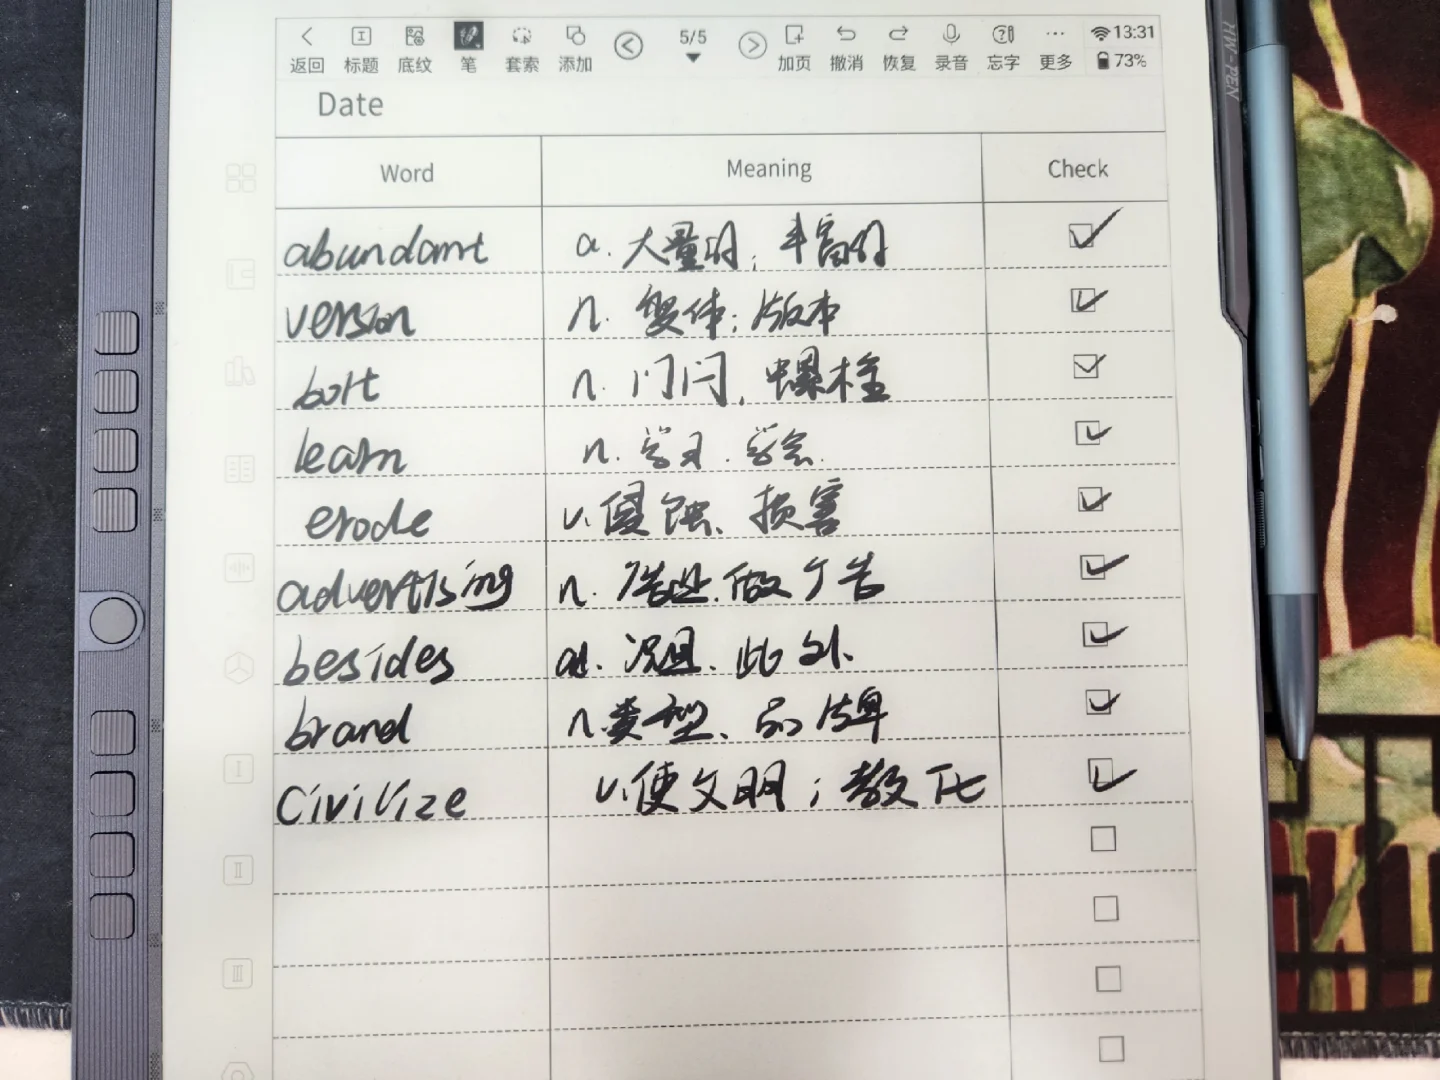 返回 标题 底纹 笔 套索 添加 5/5 加页 撤消 恢复 录音 忘字 更多 13:31 73%
Date
Word Meaning Check
abundant a. 大量的; 丰富的
version n. 变体; 版本
bolt n. 门闩, 螺栓
learn n. 学习. 学会.
erode v. 侵蚀、损害
advertising n. 做广告
besides ad. 况且、此外.
brand n. 类型、品牌
Civilize v. 使文明; 教化
HW-PEN